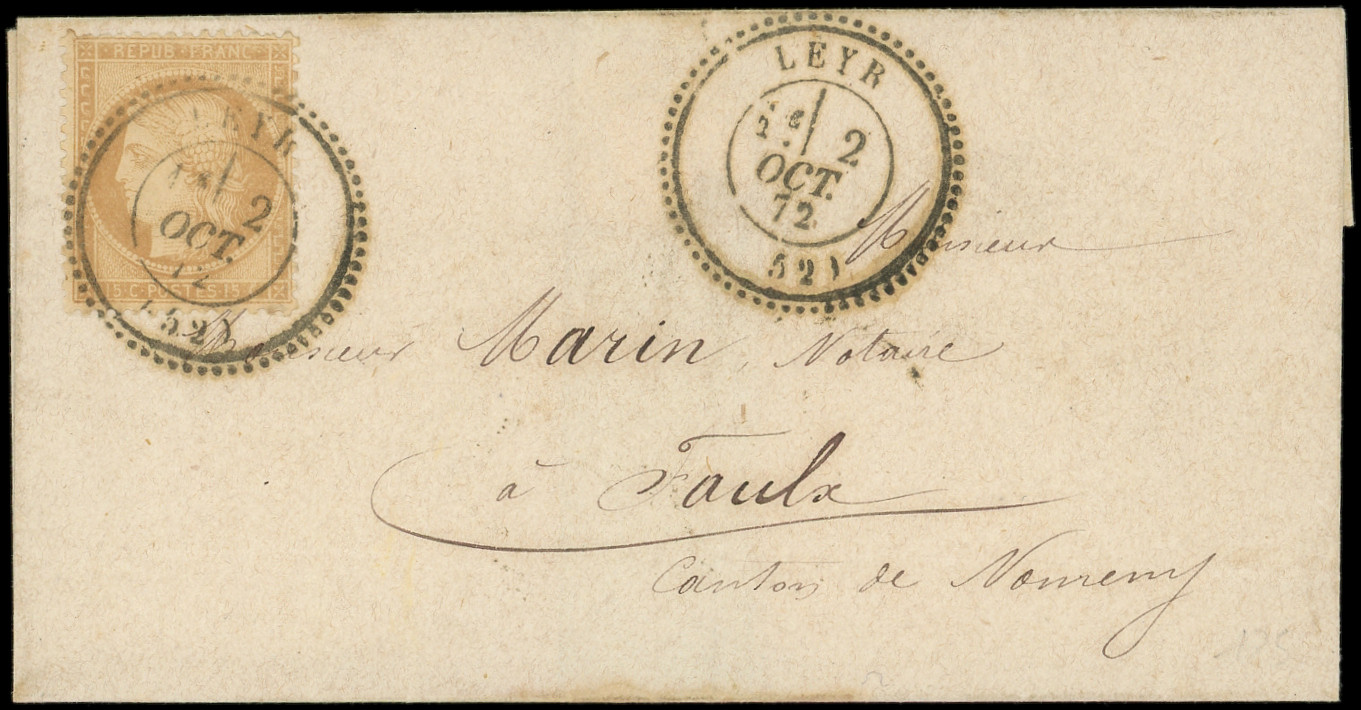 REPUB FRANC
15 C POSTES 15
LEYR
2
OCT.
72
(52)
LEYR
2
OCT.
72
52)
Monsieur
Monsieur Marin, Notaire
à Faulx
Canton de Nomeny